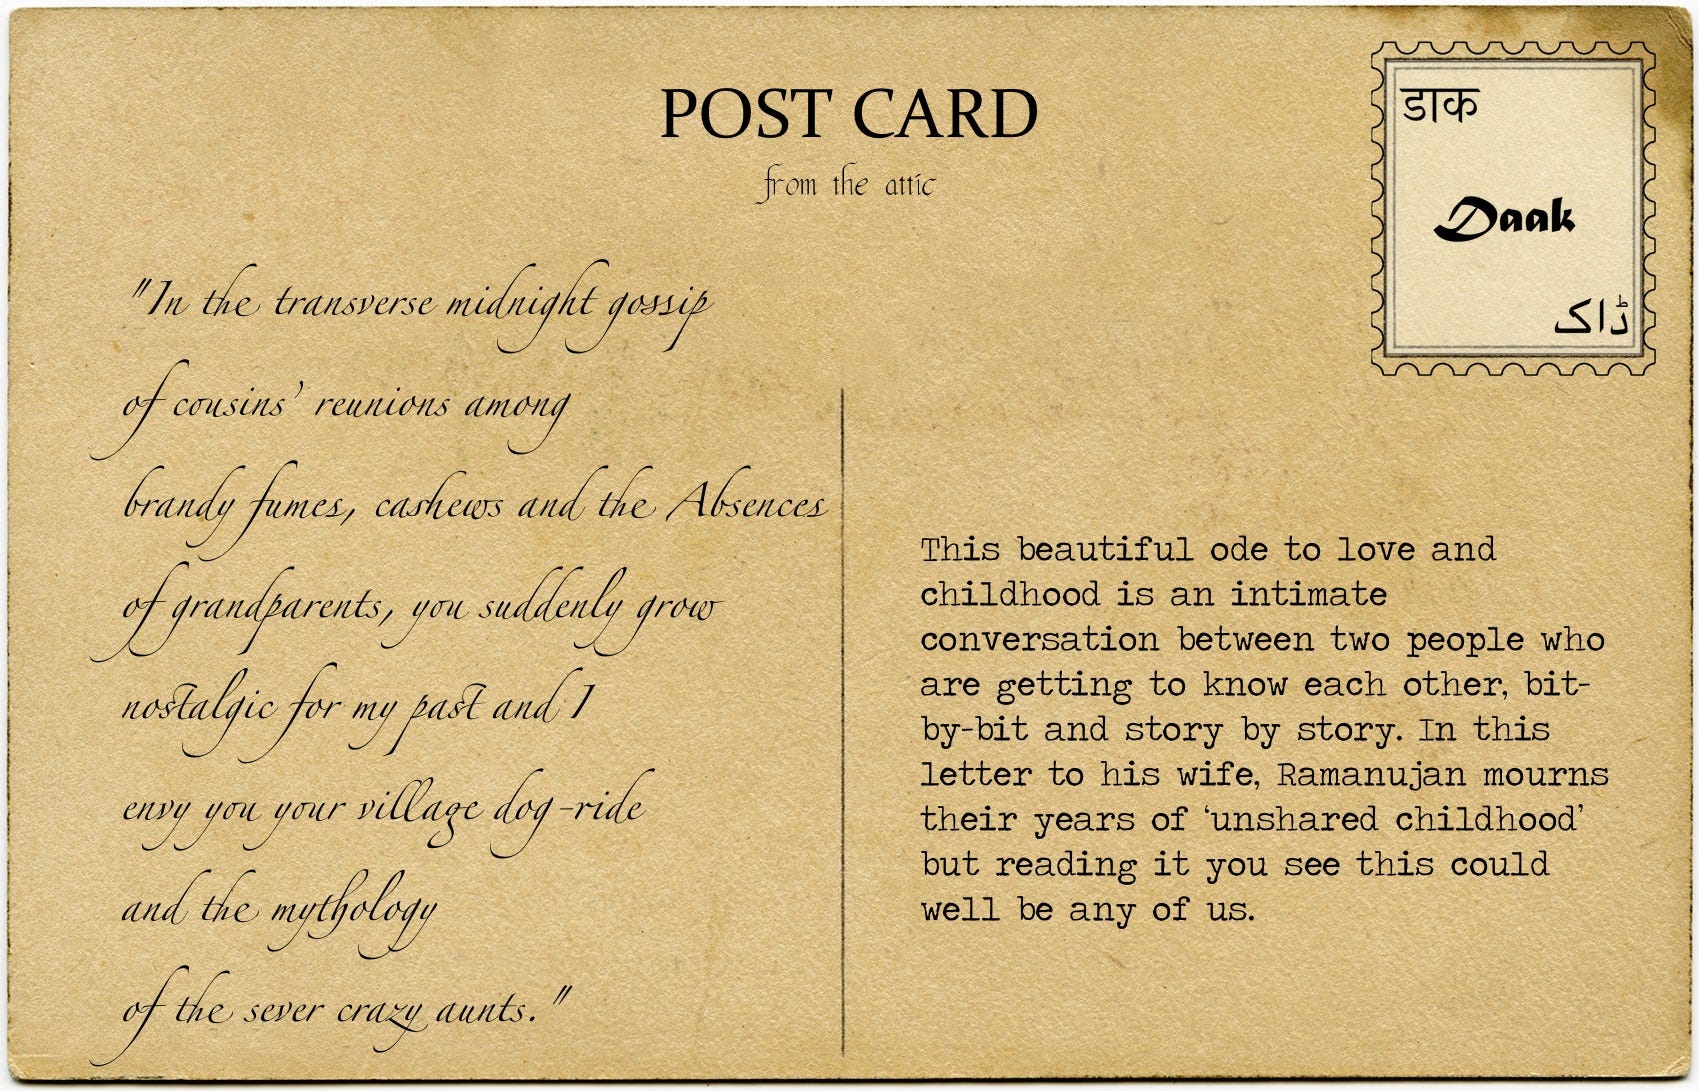 POST CARD
from the attic
डाक
Daak
ڈاک
"In the transverse midnight gossip
of cousins' reunions among
brandy fumes, cashews and the Absences
of grandparents, you suddenly grow
nostalgic for my past and I
envy you your village dog-ride
and the mythology
of the sever crazy aunts."
This beautiful ode to love and
childhood is an intimate
conversation between two people who
are getting to know each other, bit-
by-bit and story by story. In this
letter to his wife, Ramanujan mourns
their years of ‘unshared childhood’
but reading it you see this could
well be any of us.